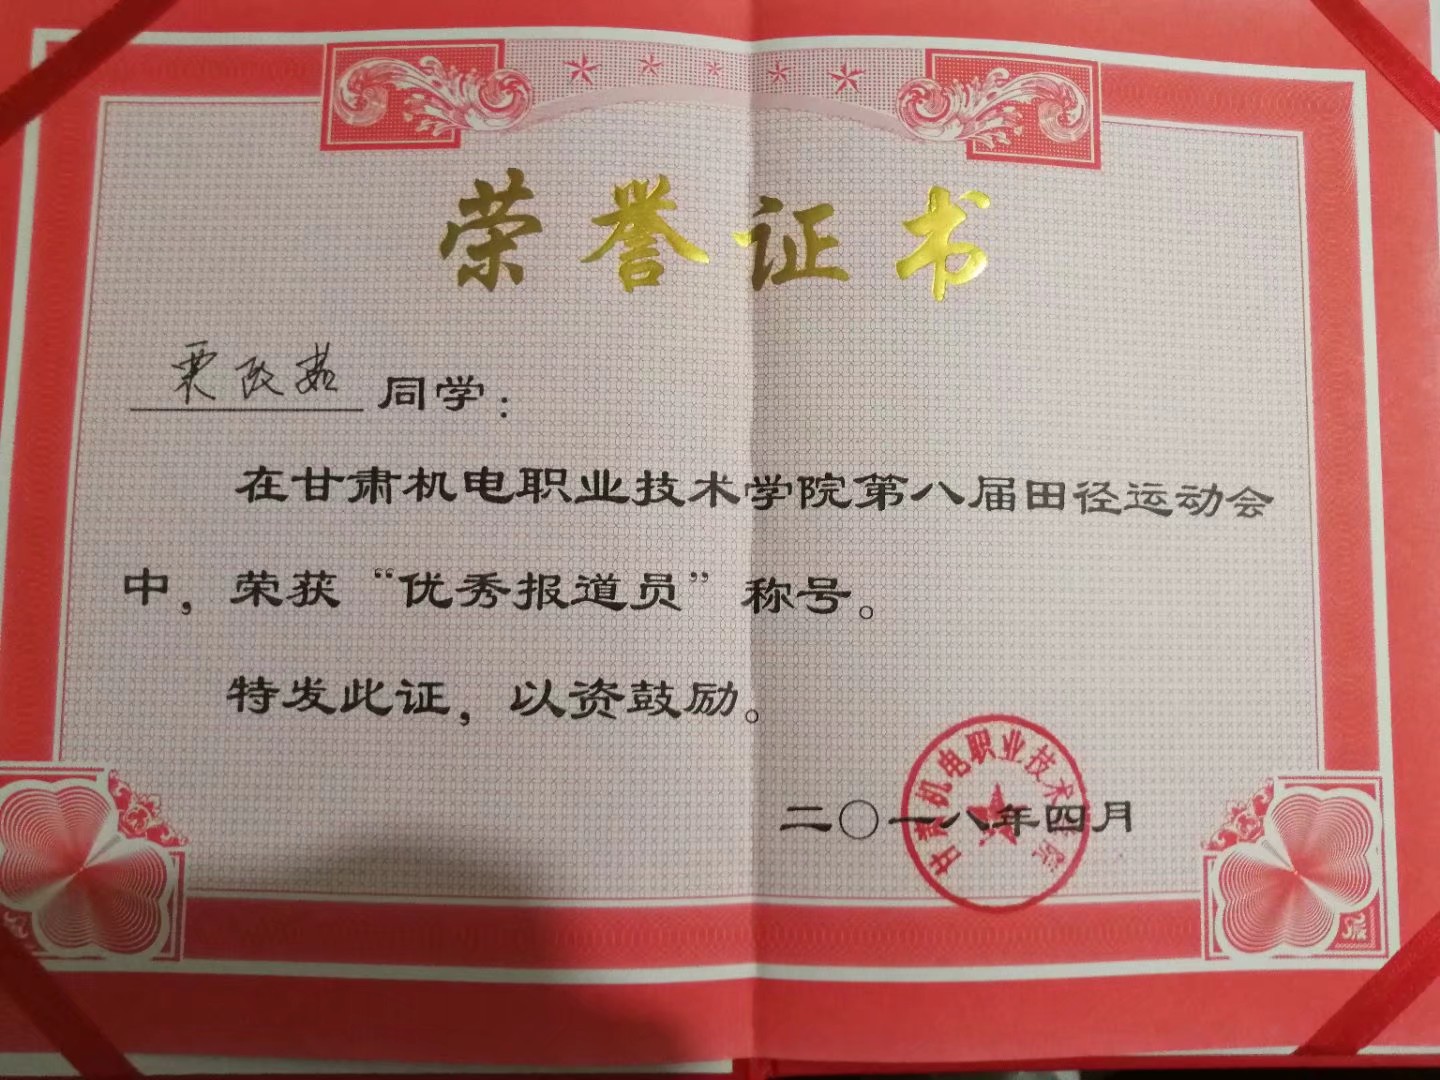 荣誉证书
同学：
在甘肃机电职业技术学院第八届田径运动会
中，荣获“优秀报道员”称号。
特发此证，以资鼓励。
甘肃机电职业技术学院
二〇一八年四月